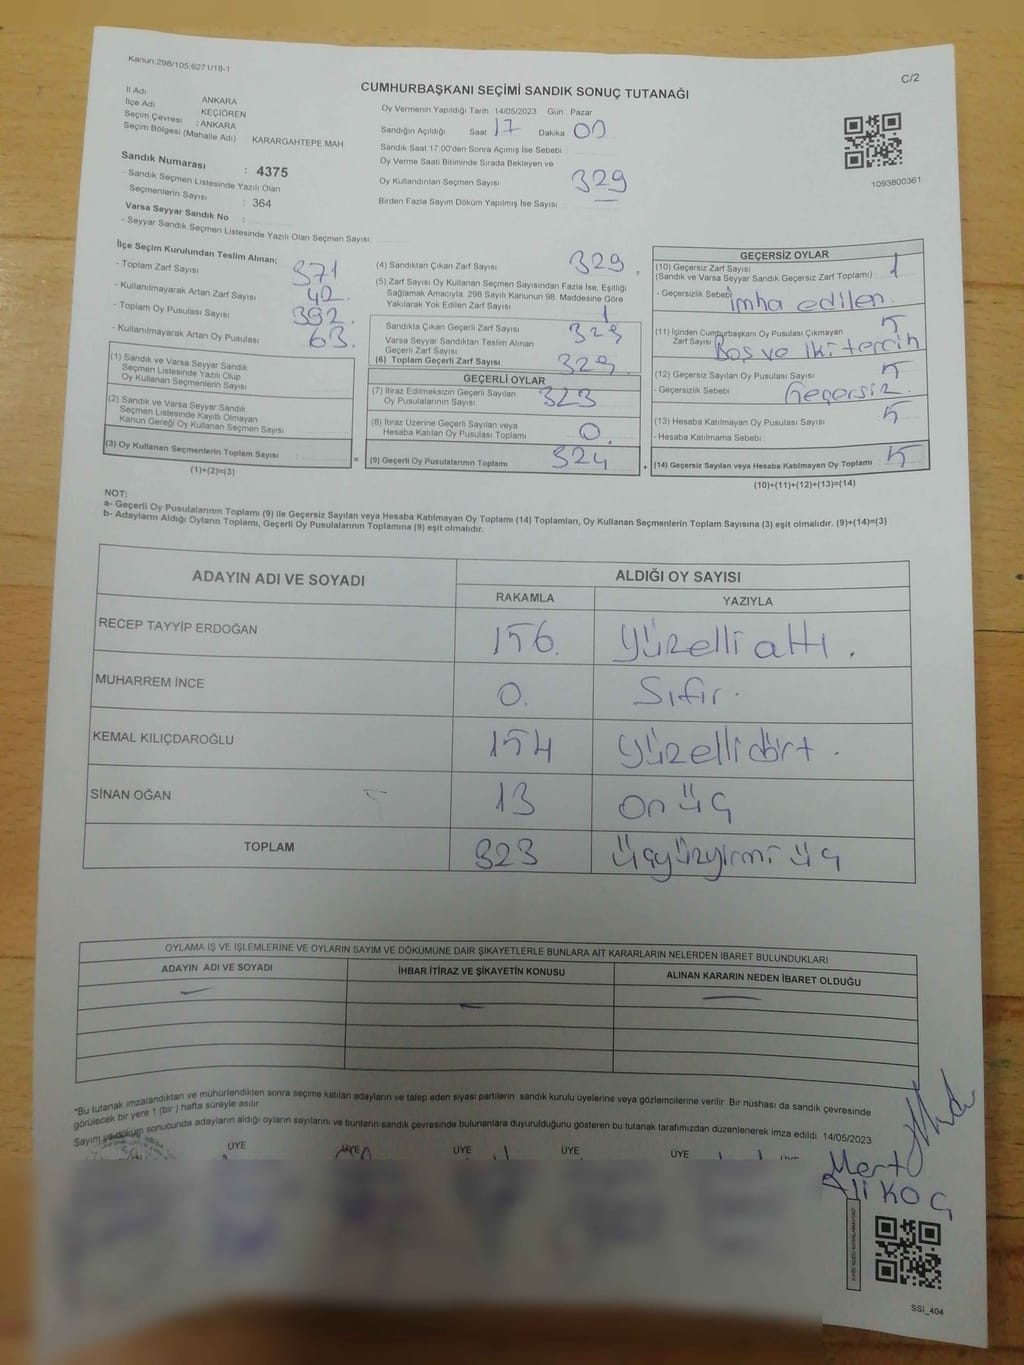 Kanun:298/105,6271/18-1
C/2
CUMHURBAŞKANI SEÇİMİ SANDIK SONUÇ TUTANAĞI
İl Adı ANKARA
İlçe Adı KEÇİÖREN
Seçim Çevresi : ANKARA
Seçim Bölgesi (Mahalle Adı) : KARARGAHTEPE MAH
Sandık Numarası : 4375
- Sandık Seçmen Listesinde Yazılı Olan
Seçmenlerin Sayısı : 364
Varsa Seyyar Sandık No :
- Seyyar Sandık Seçmen Listesinde Yazılı Olan Seçmen Sayısı:
Oy Vermenin Yapıldığı Tarih : 14/05/2023 Gün : Pazar
Sandığın Açıldığı Saat 17 Dakika 00
Sandık Saat 17:00'den Sonra Açılmış İse Sebebi :
Oy Verme Saati Bitiminde Sırada Bekleyen ve
Oy Kullandırılan Seçmen Sayısı 329
Birden Fazla Sayım Döküm Yapılmış İse Sayısı :
1093800361
İlçe Seçim Kurulundan Teslim Alınan;
- Toplam Zarf Sayısı 371
- Kullanılmayarak Artan Zarf Sayısı 42.
- Toplam Oy Pusulası Sayısı 392.
- Kullanılmayarak Artan Oy Pusulası 63.
(1) Sandık ve Varsa Seyyar Sandık
Seçmen Listesinde Yazılı Olup
Oy Kullanan Seçmenlerin Sayısı
(2) Sandık ve Varsa Seyyar Sandık
Seçmen Listesinde Kayıtlı Olmayan
Kanun Gereği Oy Kullanan Seçmen Sayısı
(3) Oy Kullanan Seçmenlerin Toplam Sayısı :
(1)+(2)=(3)
=
(4) Sandıktan Çıkan Zarf Sayısı 329.
(5) Zarf Sayısı Oy Kullanan Seçmen Sayısından Fazla İse, Eşitliği
Sağlamak Amacıyla, 298 Sayılı Kanunun 98. Maddesine Göre
Yakılarak Yok Edilen Zarf Sayısı 1
Sandıkta Çıkan Geçerli Zarf Sayısı 329
Varsa Seyyar Sandıktan Teslim Alınan
Geçerli Zarf Sayısı
(6) Toplam Geçerli Zarf Sayısı 329.
GEÇERLİ OYLAR
(7) İtiraz Edilmeksizin Geçerli Sayılan
Oy Pusulalarının Sayısı 323
(8) İtiraz Üzerine Geçerli Sayılan veya
Hesaba Katılan Oy Pusulası Toplamı 0.
(9) Geçerli Oy Pusulalarının Toplamı 324
+
GEÇERSİZ OYLAR
(10) Geçersiz Zarf Sayısı
(Sandık ve Varsa Seyyar Sandık Geçersiz Zarf Toplamı) 1
- Geçersizlik Sebebi İmha edilen.
(11) İçinden Cumhurbaşkanı Oy Pusulası Çıkmayan
Zarf Sayısı 5
Boş ve İki tercih
(12) Geçersiz Sayılan Oy Pusulası Sayısı 5
- Geçersizlik Sebebi Geçersiz.
(13) Hesaba Katılmayan Oy Pusulası Sayısı 5
- Hesaba Katılmama Sebebi :
(14) Geçersiz Sayılan veya Hesaba Katılmayan Oy Toplamı : 5
(10)+(11)+(12)+(13)=(14)
NOT:
a- Geçerli Oy Pusulalarının Toplamı (9) ile Geçersiz Sayılan veya Hesaba Katılmayan Oy Toplamı (14) Toplamları, Oy Kullanan Seçmenlerin Toplam Sayısına (3) eşit olmalıdır. (9)+(14)=(3)
b- Adayların Aldığı Oyların Toplamı, Geçerli Oy Pusulalarının Toplamına (9) eşit olmalıdır.
ADAYIN ADI VE SOYADI ALDIĞI OY SAYISI
RAKAMLA YAZIYLA
RECEP TAYYİP ERDOĞAN 156. Yüzelli altı.
MUHARREM İNCE 0. Sıfır.
KEMAL KILIÇDAROĞLU 154 Yüzelli dört.
SİNAN OĞAN 13 on üç
TOPLAM 323 üçyüzyirmi üç
OYLAMA İŞ VE İŞLEMLERİNE VE OYLARIN SAYIM VE DÖKÜMÜNE DAİR ŞİKAYETLERLE BUNLARA AİT KARARLARIN NELERDEN İBARET BULUNDUKLARI
ADAYIN ADI VE SOYADI İHBAR İTİRAZ VE ŞİKAYETİN KONUSU ALINAN KARARIN NEDEN İBARET OLDUĞU
*Bu tutanak imzalandıktan ve mühürlendikten sonra seçime katılan adayların ve talep eden siyasi partilerin sandık kurulu üyelerine veya gözlemcilerine verilir. Bir nüshası da sandık çevresinde
görülecek bir yere 1 (bir ) hafta süreyle asılır.
Sayım ve döküm sonucunda adayların aldığı oyların sayılarını ve bunların sandık çevresinde bulunanlara duyurulduğunu gösteren bu tutanak tarafımızdan düzenlenerek imza edildi. 14/05/2023
ÜYE ÜYE ÜYE ÜYE ÜYE ÜYE
Mert
Ali KOÇ
SSI_404